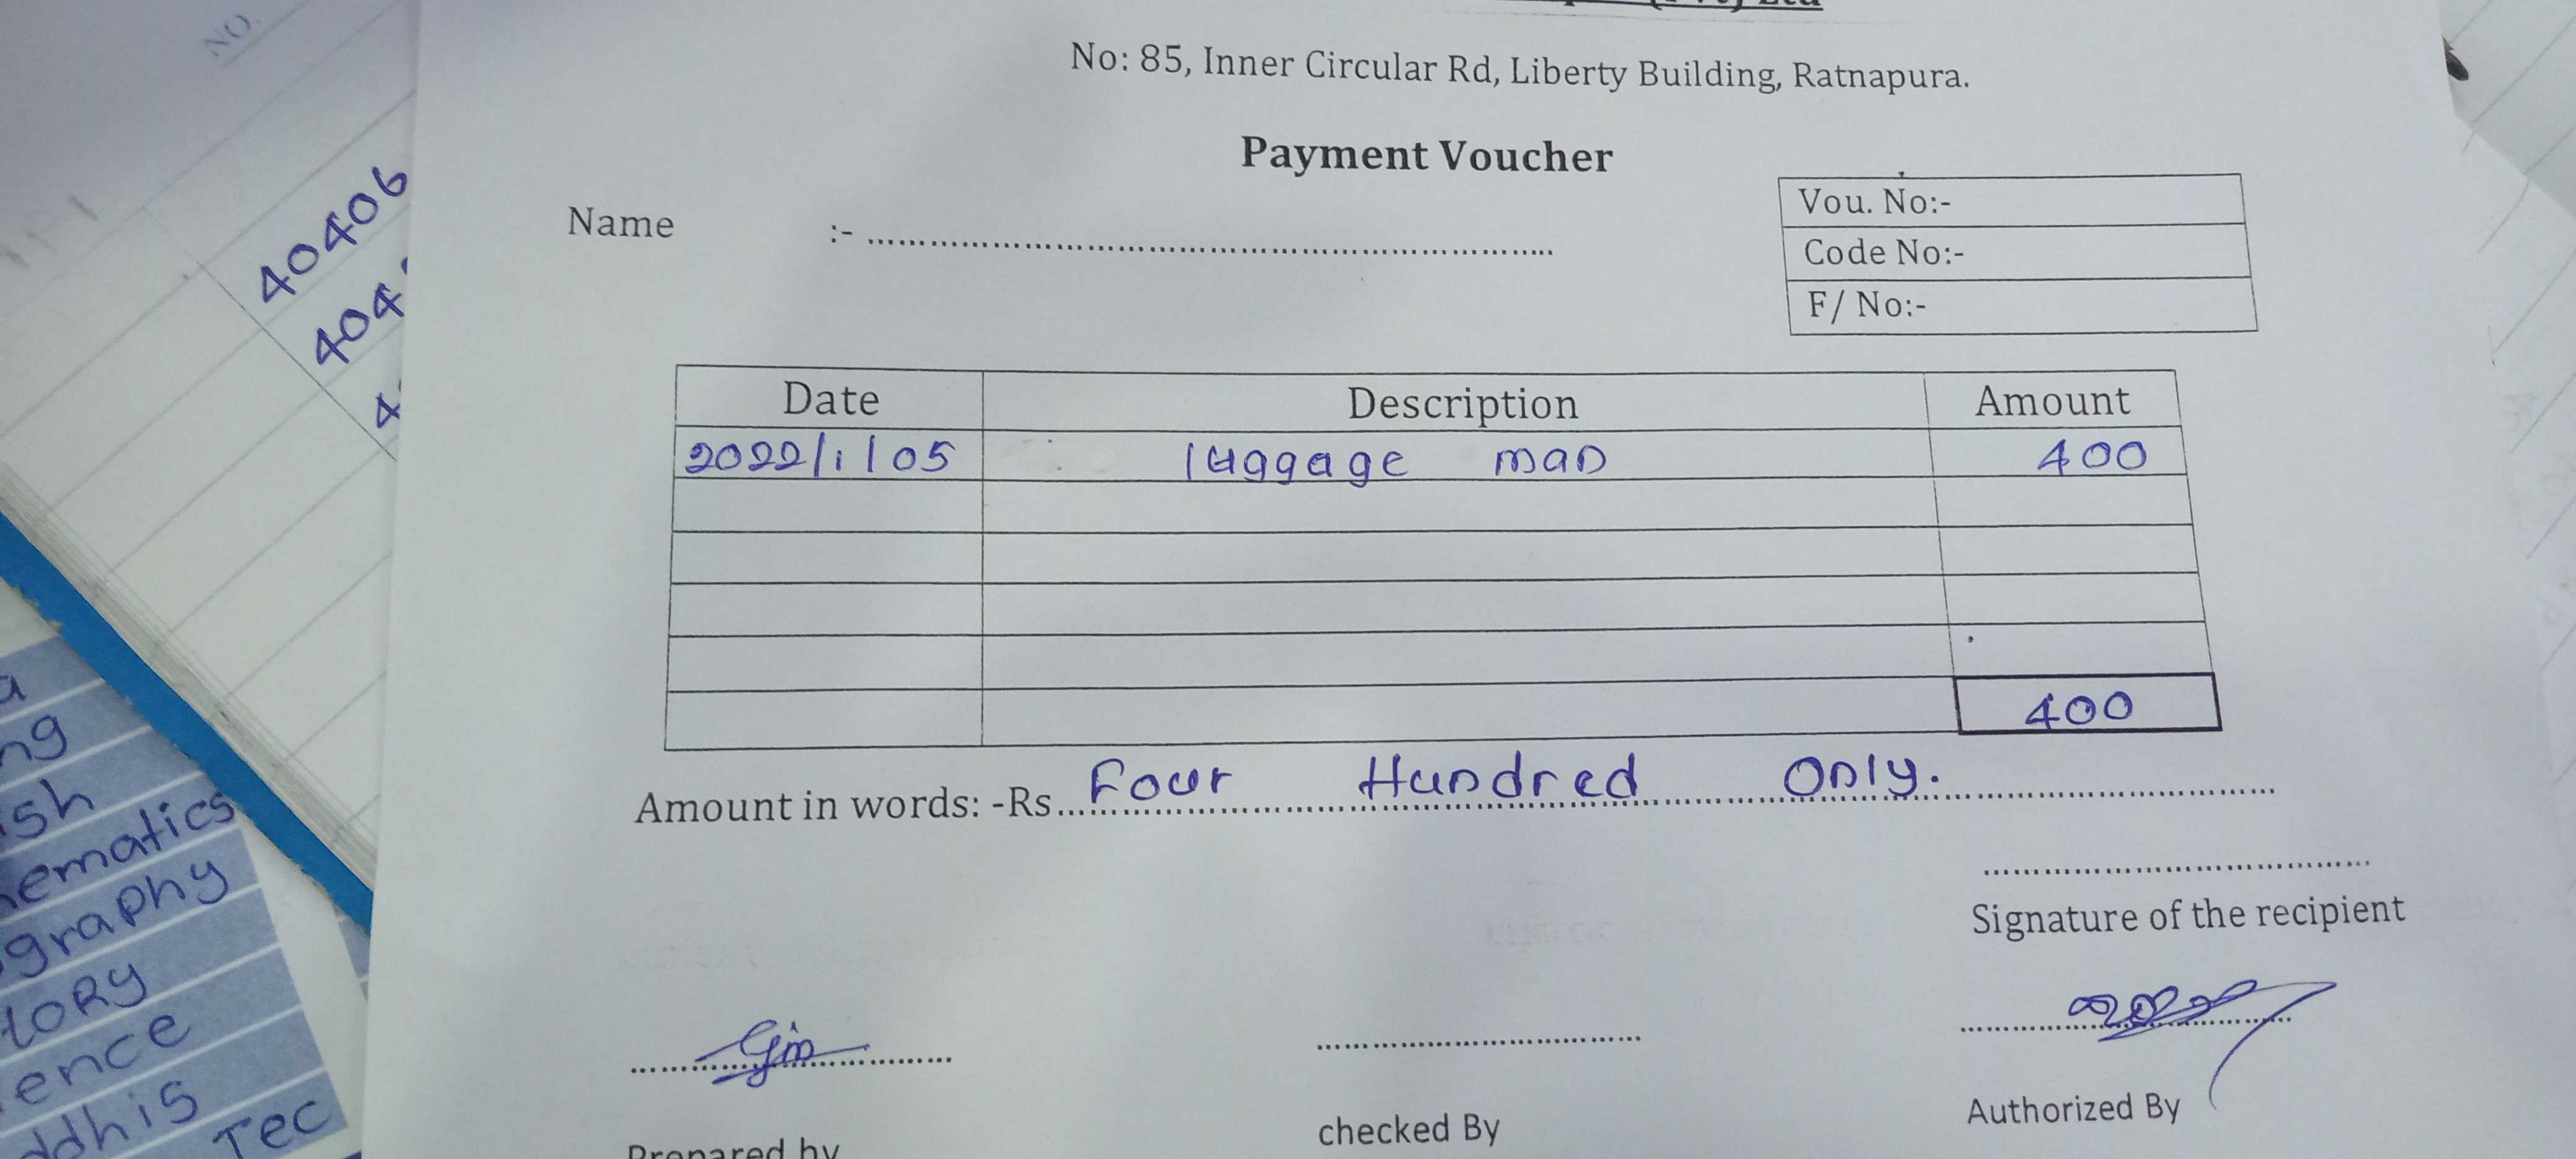 Ltd
No: 85, Inner Circular Rd, Liberty Building, Ratnapura.
Payment Voucher
Name :- ........................................................
Vou. No:-
Code No:-
F/ No:-
Date Description Amount
2022/1/05 luggage man 400
400
Amount in words: -Rs Four Hundred Only.
Signature of the recipient
Prepared by checked By Authorized By
NO.
40406
404
4
ng
sh
ematics
graphy
tory
ence
ddhis
Tec